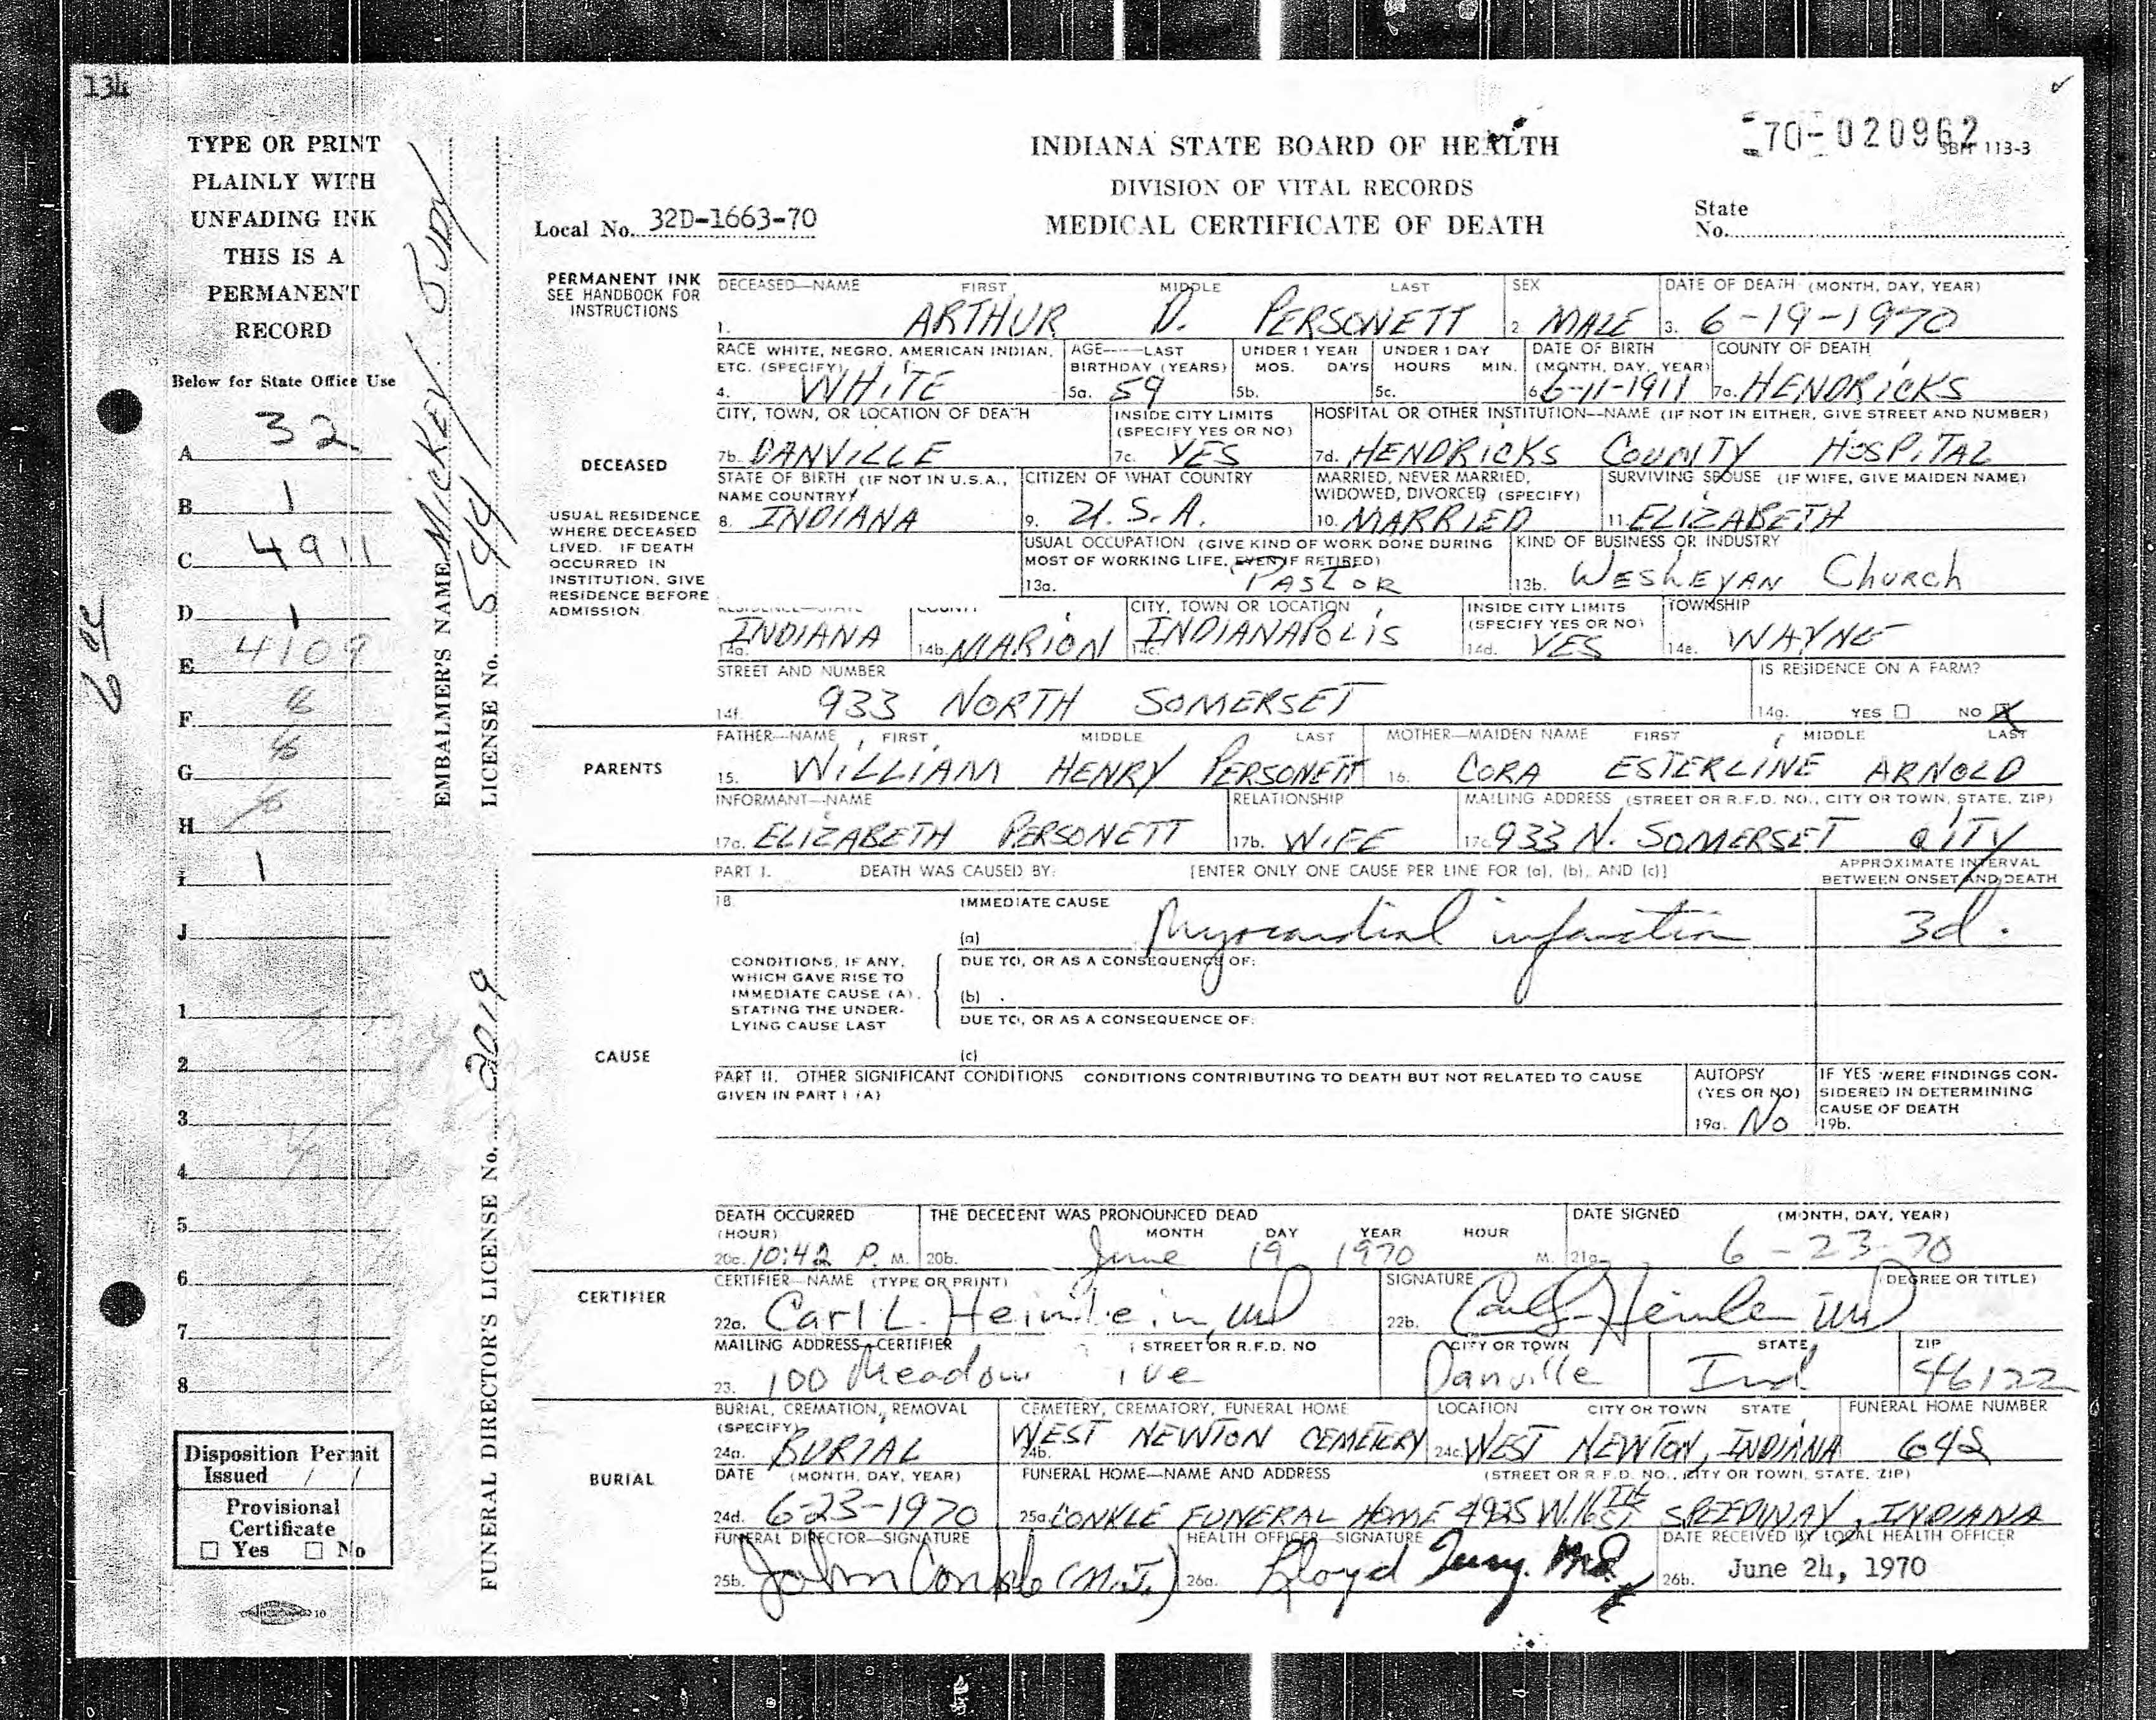 134
70-020962
SBH 113-3
INDIANA STATE BOARD OF HEALTH
DIVISION OF VITAL RECORDS
MEDICAL CERTIFICATE OF DEATH
Local No. 32D-1663-70
State
No.
TYPE OR PRINT
PLAINLY WITH
UNFADING INK
THIS IS A
PERMANENT
RECORD
Below for State Office Use
A 32
B 1
C 4911
D 1
E 4109
F
G
H
I 1
J
1
2
3
4
5
6
7
8
Disposition Permit
Issued / /
Provisional
Certificate
☐ Yes ☐ No
10
EMBALMER'S NAME MICKEY JUDY
LICENSE No. 544
FUNERAL DIRECTOR'S LICENSE No. 2019
PERMANENT INK
SEE HANDBOOK FOR
INSTRUCTIONS
DECEASED—NAME FIRST MIDDLE LAST SEX DATE OF DEATH (MONTH, DAY, YEAR)
1. ARTHUR D. PERSONETT 2. MALE 3. 6-19-1970
RACE WHITE, NEGRO, AMERICAN INDIAN, AGE—LAST UNDER 1 YEAR UNDER 1 DAY DATE OF BIRTH COUNTY OF DEATH
ETC. (SPECIFY) BIRTHDAY (YEARS) MOS. DAYS HOURS MIN. (MONTH, DAY, YEAR)
4. WHITE 5a. 59 5b. 5c. 6. 6-11-1911 7a. HENDRICKS
CITY, TOWN, OR LOCATION OF DEATH INSIDE CITY LIMITS HOSPITAL OR OTHER INSTITUTION—NAME (IF NOT IN EITHER, GIVE STREET AND NUMBER)
(SPECIFY YES OR NO)
7b. DANVILLE 7c. YES 7d. HENDRICKS COUNTY HOSPITAL
DECEASED
STATE OF BIRTH (IF NOT IN U.S.A., CITIZEN OF WHAT COUNTRY MARRIED, NEVER MARRIED, SURVIVING SPOUSE (IF WIFE, GIVE MAIDEN NAME)
NAME COUNTRY) WIDOWED, DIVORCED (SPECIFY)
8. INDIANA 9. U.S.A. 10. MARRIED 11. ELIZABETH
USUAL RESIDENCE
WHERE DECEASED
LIVED. IF DEATH
OCCURRED IN
INSTITUTION, GIVE
RESIDENCE BEFORE
ADMISSION.
USUAL OCCUPATION (GIVE KIND OF WORK DONE DURING KIND OF BUSINESS OR INDUSTRY
MOST OF WORKING LIFE, EVEN IF RETIRED)
13a. PASTOR 13b. WESHLEYAN CHURCH
RESIDENCE—STATE COUNTY CITY, TOWN OR LOCATION INSIDE CITY LIMITS TOWNSHIP
(SPECIFY YES OR NO)
14a. INDIANA 14b. MARION 14c. INDIANAPOLIS 14d. YES 14e. WAYNE
STREET AND NUMBER IS RESIDENCE ON A FARM?
14f. 933 NORTH SOMERSET 14g. YES ☐ NO ☒
PARENTS
FATHER—NAME FIRST MIDDLE LAST MOTHER—MAIDEN NAME FIRST MIDDLE LAST
15. WILLIAM HENRY PERSONETT 16. CORA ESTERLINE ARNOLD
INFORMANT—NAME RELATIONSHIP MAILING ADDRESS (STREET OR R.F.D. NO., CITY OR TOWN, STATE, ZIP)
17a. ELIZABETH PERSONETT 17b. WIFE 17c. 933 N. SOMERSET CITY
PART I. DEATH WAS CAUSED BY: [ENTER ONLY ONE CAUSE PER LINE FOR (a), (b), AND (c)] APPROXIMATE INTERVAL
BETWEEN ONSET AND DEATH
18. IMMEDIATE CAUSE
(a) Myocardial infarction 3d.
CONDITIONS, IF ANY,
WHICH GAVE RISE TO
IMMEDIATE CAUSE (A),
STATING THE UNDER-
LYING CAUSE LAST
DUE TO, OR AS A CONSEQUENCE OF:
(b)
DUE TO, OR AS A CONSEQUENCE OF:
(c)
CAUSE
PART II. OTHER SIGNIFICANT CONDITIONS CONDITIONS CONTRIBUTING TO DEATH BUT NOT RELATED TO CAUSE
GIVEN IN PART I (A)
AUTOPSY
(YES OR NO)
19a. No
IF YES WERE FINDINGS CON-
SIDERED IN DETERMINING
CAUSE OF DEATH
19b.
DEATH OCCURRED THE DECEDENT WAS PRONOUNCED DEAD DATE SIGNED (MONTH, DAY, YEAR)
(HOUR) MONTH DAY YEAR HOUR
20a. 10:42 P. M. 20b. June 19 1970 M. 21a. 6-23-70
CERTIFIER
CERTIFIER—NAME (TYPE OR PRINT) SIGNATURE (DEGREE OR TITLE)
22a. Carl L. Heinlein, MD 22b. Carl L. Heinlein MD
MAILING ADDRESS—CERTIFIER STREET OR R.F.D. NO CITY OR TOWN STATE ZIP
23. 100 Meadow ive Danville Ind 46122
BURIAL
BURIAL, CREMATION, REMOVAL CEMETERY, CREMATORY, FUNERAL HOME LOCATION CITY OR TOWN STATE FUNERAL HOME NUMBER
(SPECIFY)
24a. BURIAL 24b. WEST NEWTON CEMETERY 24c. WEST NEWTON, INDIANA 642
DATE (MONTH, DAY, YEAR) FUNERAL HOME—NAME AND ADDRESS (STREET OR R.F.D. NO., CITY OR TOWN, STATE, ZIP)
24d. 6-23-1970 25a. CONKLE FUNERAL HOME 4925 W. 16TH ST SPEEDWAY, INDIANA
FUNERAL DIRECTOR—SIGNATURE HEALTH OFFICER—SIGNATURE DATE RECEIVED BY LOCAL HEALTH OFFICER
25b. John Conkle (M.J.) 26a. Lloyd Terry MD 26b. June 24, 1970